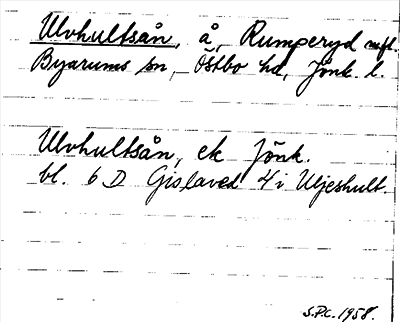 Ulvhultsån, å, Rumperyd mfl.
Byarums sn, Östbo hd, Jönk. l.
Ulvhultsån, ek Jönk.
bl. 6 D Gislaved 4 i Uljeshult.
S.P.C. 1958.